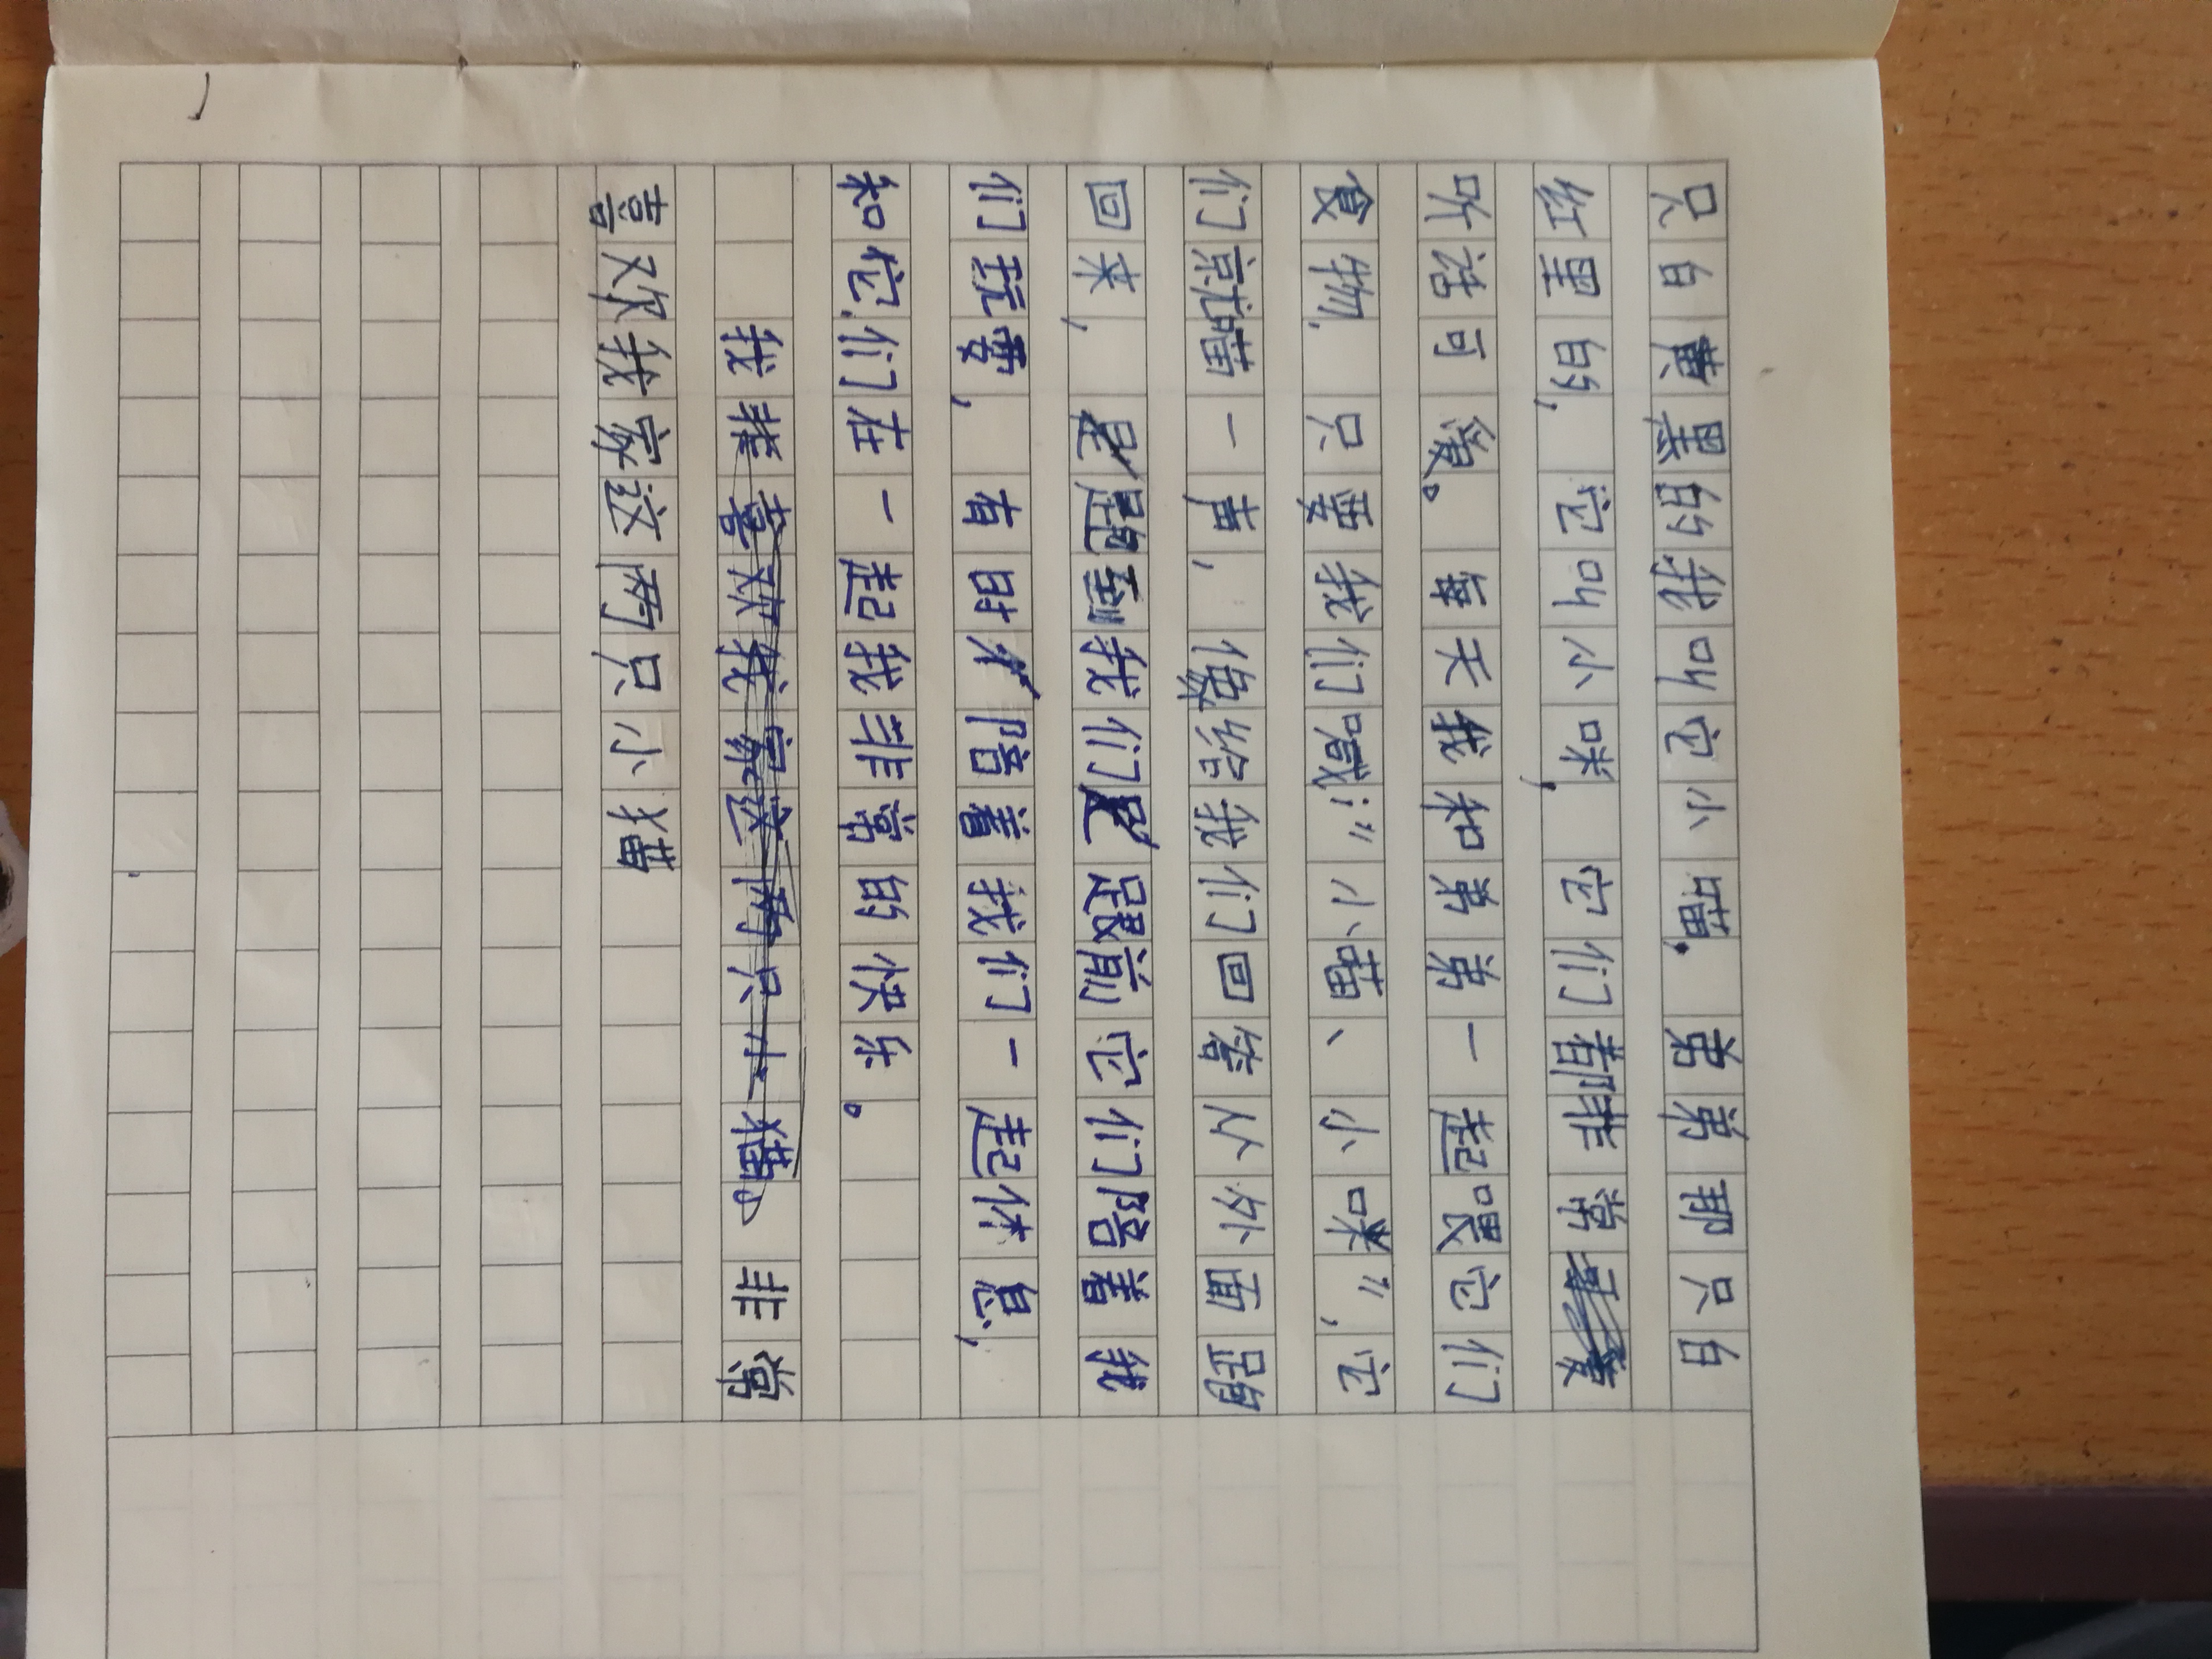 只白黄黑的我叫它小喵，弟弟那只白
红黑的，它叫小咪，它们都非常
听话可爱。每天我和弟弟一起喂它们
食物，只要我们喊:"小喵、小咪"，它
们就喵一声，像给我们回答从外面跑
回来，跑到我们跟前它们陪着我
们玩耍，有时陪着我们一起休息，
和它们在一起我非常的快乐。
我非常
喜欢我家这两只小猫